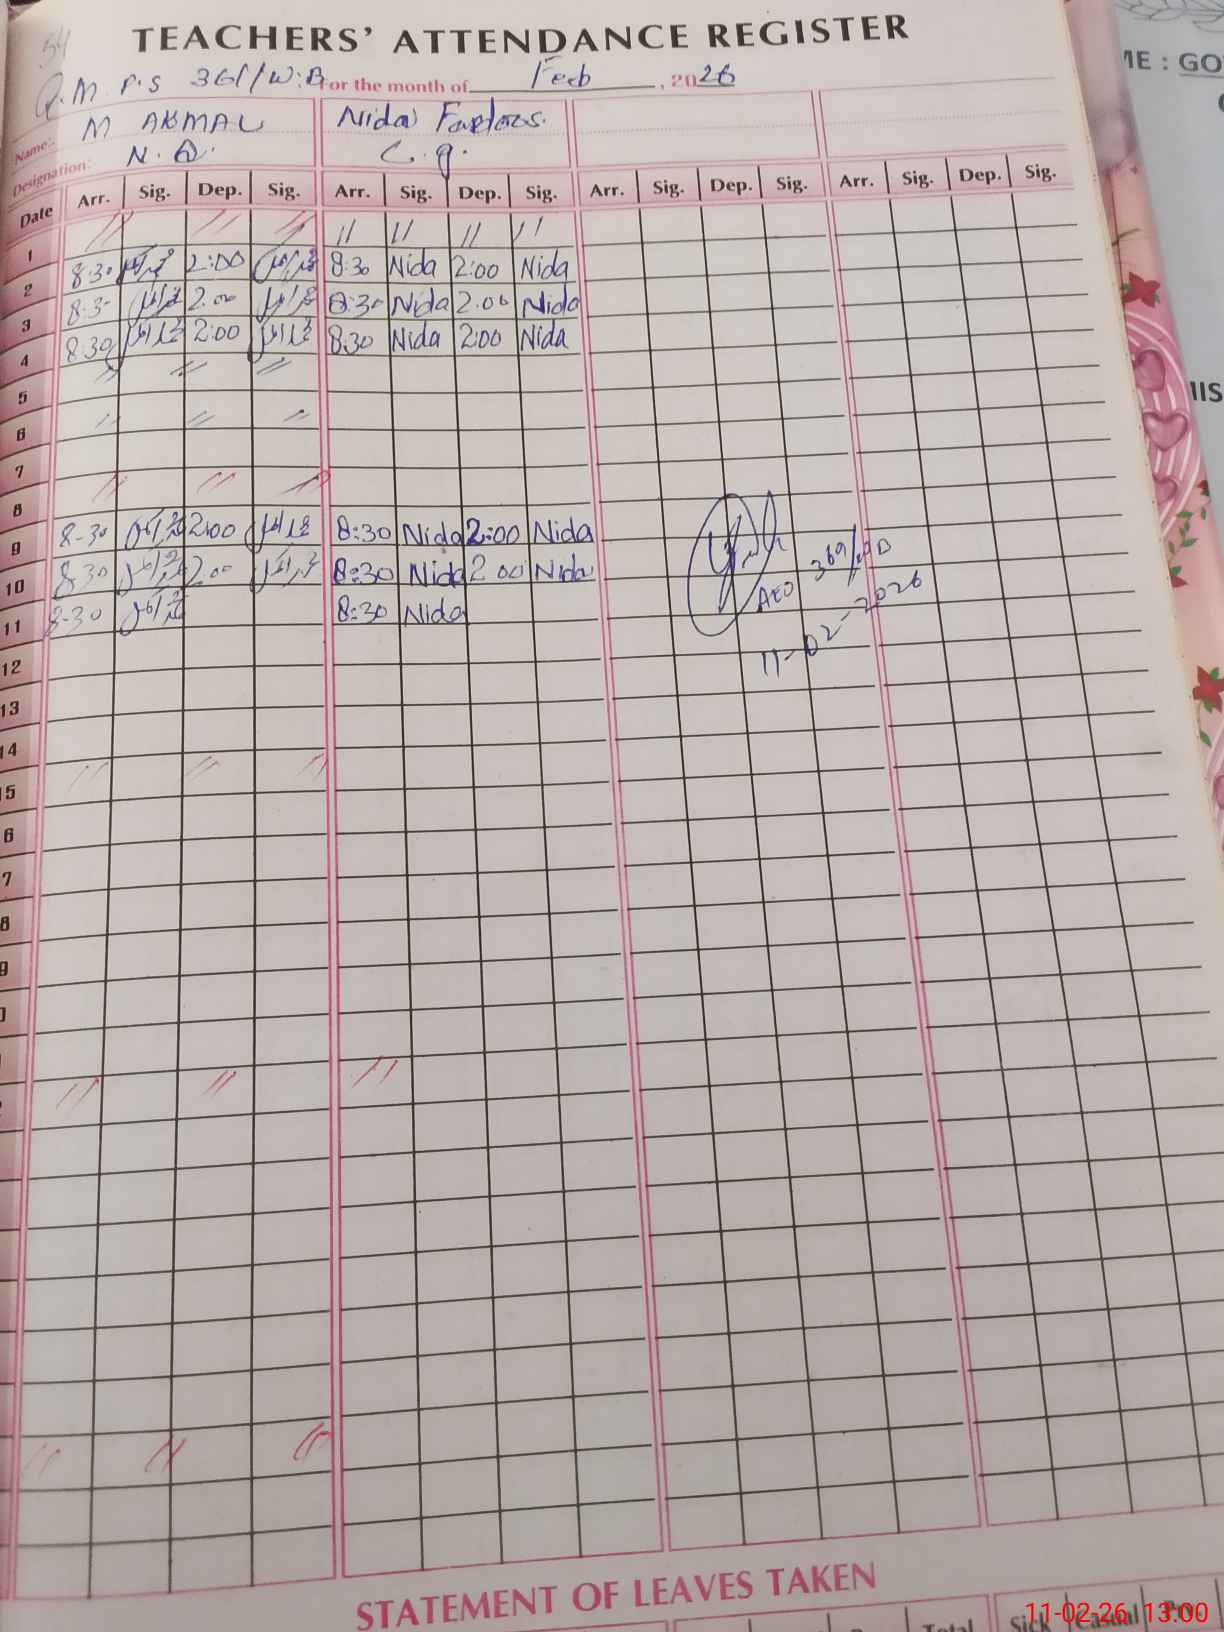 54
TEACHERS' ATTENDANCE REGISTER
G.M P.S 361/W.B For the month of Feb, 2026
Name:- M AKMAL Nida Fardoos.
Designation: N.Q. C.g.
Date Arr. Sig. Dep. Sig. Arr. Sig. Dep. Sig. Arr. Sig. Dep. Sig. Arr. Sig. Dep. Sig.
1 // // // // // // //
2 8:30 2:00 8:30 Nida 2:00 Nida
3 8:30 2.00 8:30 Nida 2.00 Nida
4 8:30 2:00 830 Nida 2:00 Nida
5 // // //
6 // // //
7
8 // // //
9 8-30 2:00 8:30 Nida 2:00 Nida
10 8:30 2.00 8:30 Nida 2 00 Nida
11 8-30 8:30 Nida
AEO 369/WB
11-02-2026
12
13
14
15 // // //
6
7
8
9
0
// // //
// //
STATEMENT OF LEAVES TAKEN
Total Sick Casual
ME : GO
IIS
11-02-26 13:00